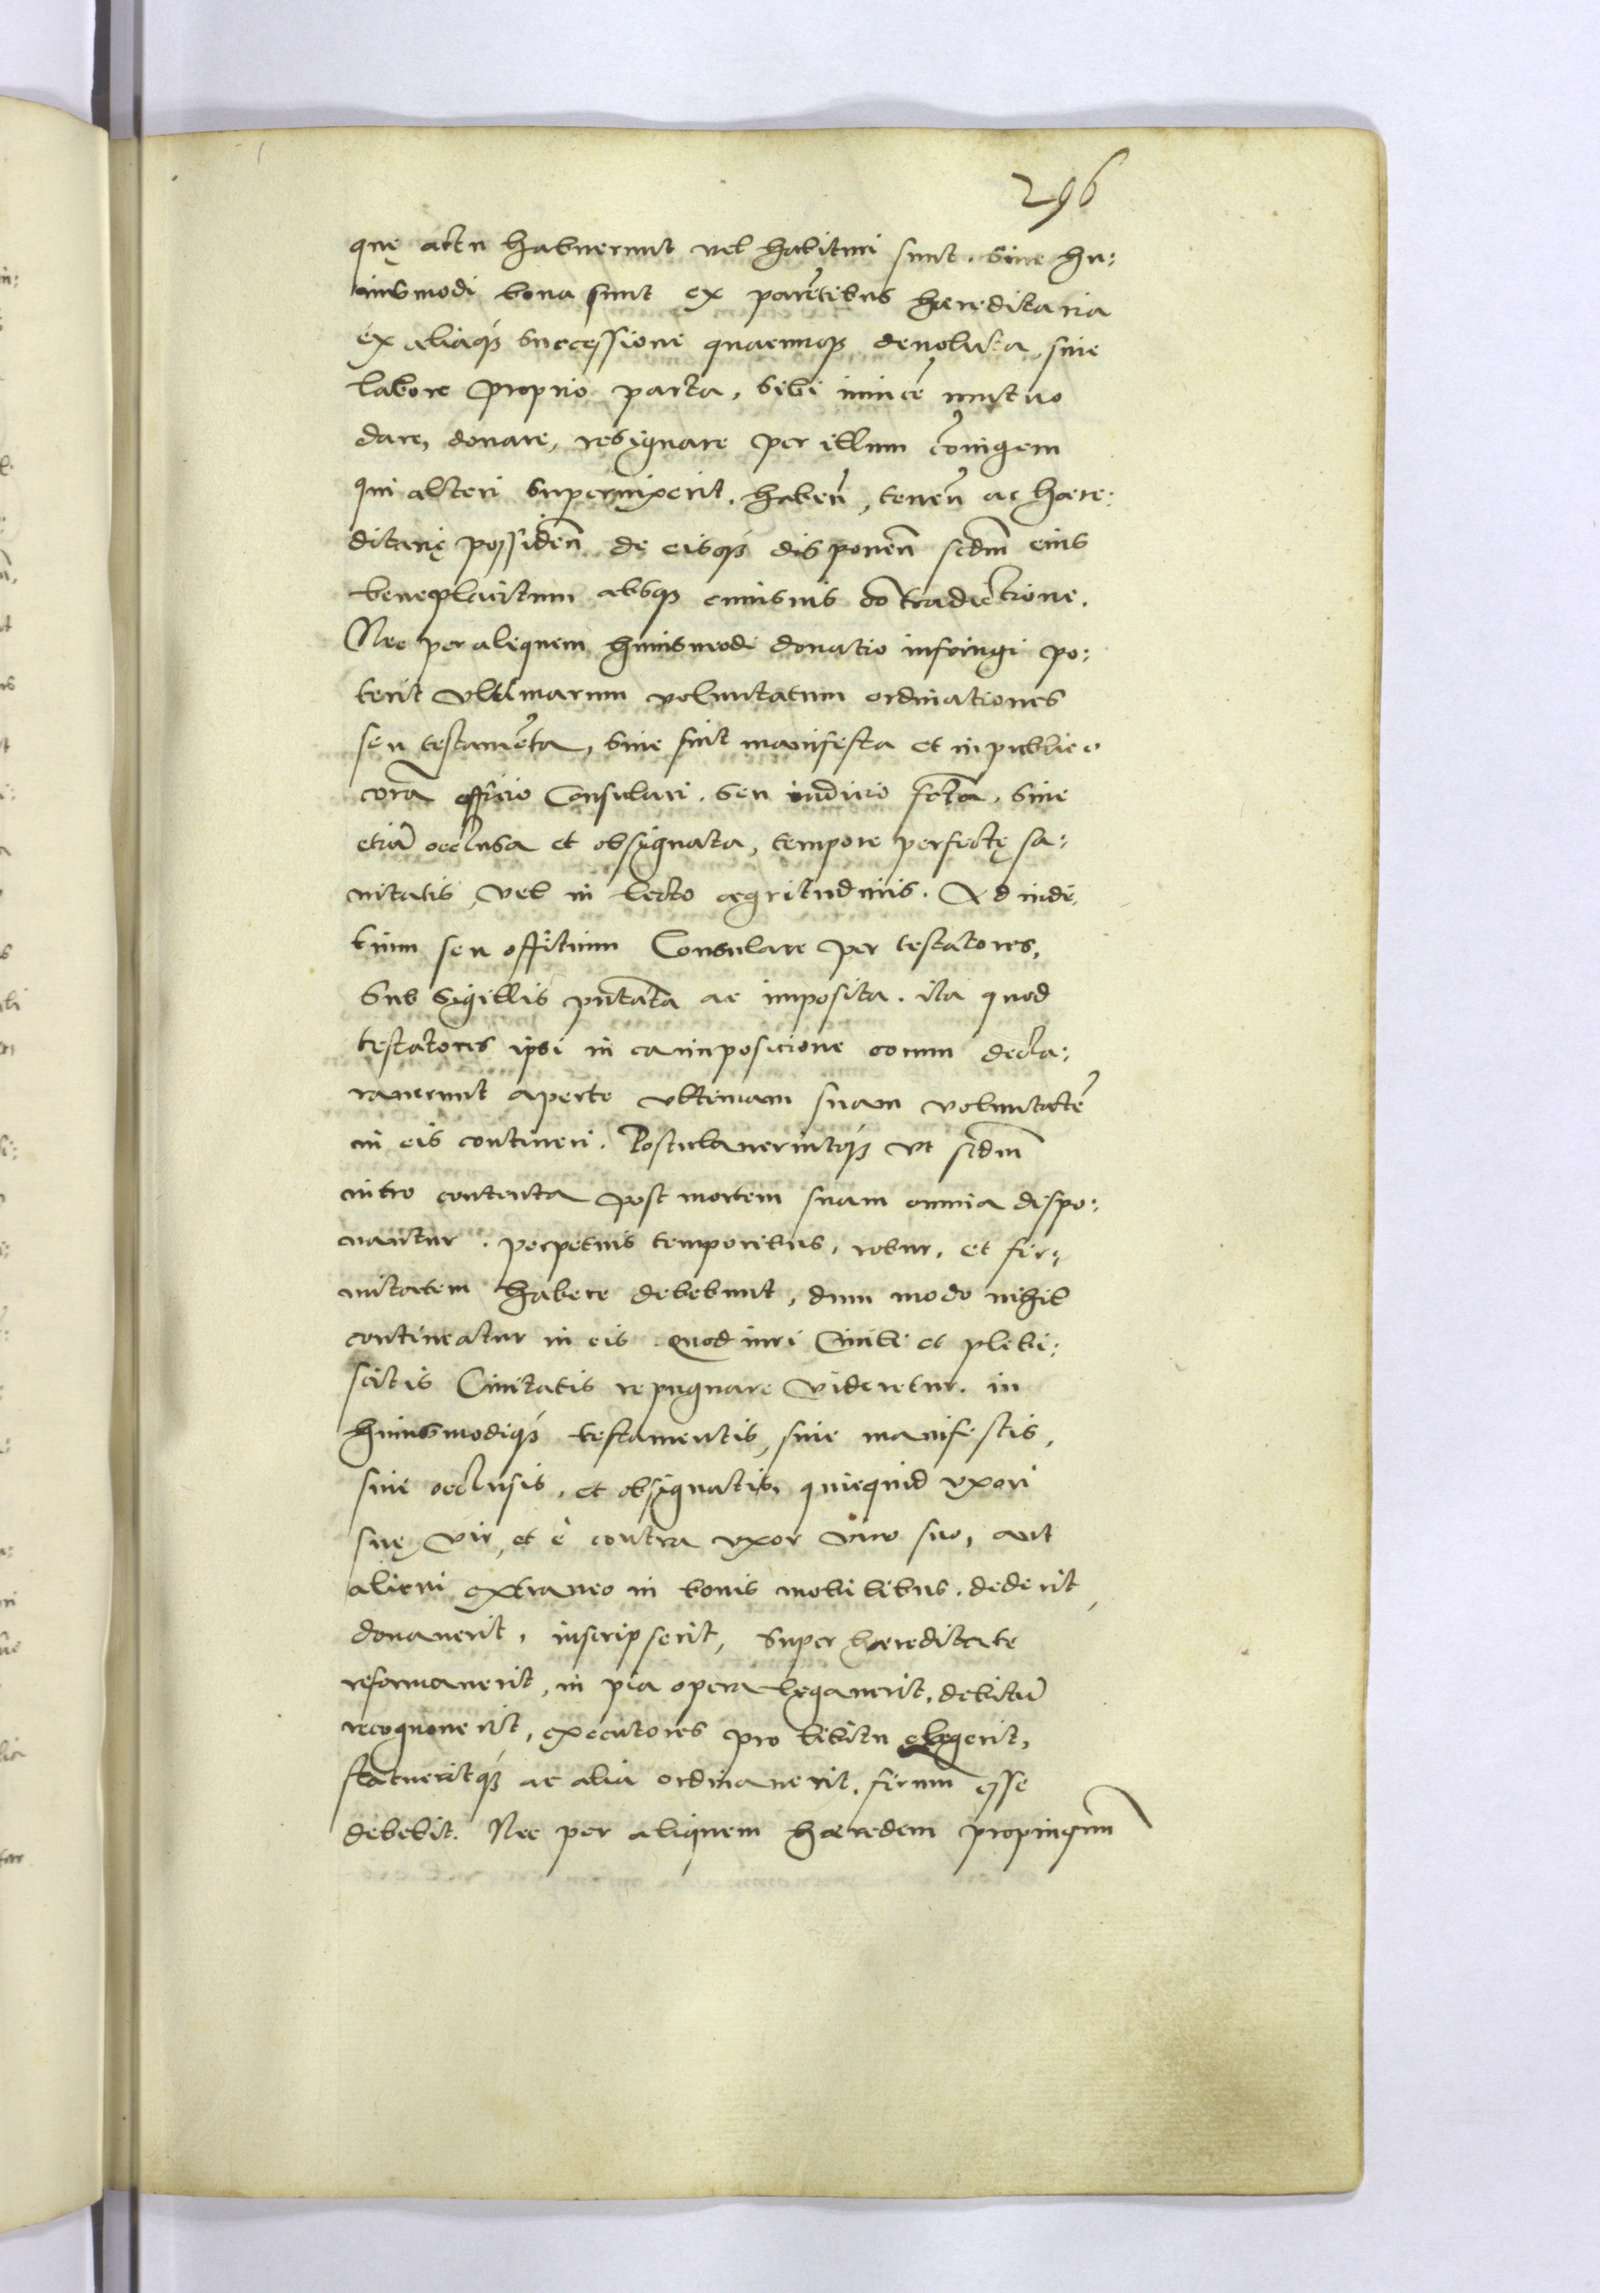 296
quę actu habuerunt vel habituri sunt. Siue hu:
iusmodi bona sunt ex parẽtibus haereditaria
ex aliaq́ꝫ successione quacunqꝫ deuoluta, siue
labore proprio parta, sibi inuicẽ mutuo
dare, donare, resignare per illum cõiugem
qui alteri superuixerit. habeñ, teneñ ac haere:
ditarię possideñ de eisq́ꝫ disponeñ scdm̃ eius
beneplacitum absqꝫ cuiusuis cõtradictione.
Nec per aliquem huiusmodi donatio infringi po:
terit vltimarum voluntatum ordinationes
seu testamẽta, siue sint manifesta et in publico
corã officio Consulari. seu iudicio fcta, siue
etiã occlusa et obsignata, tempore perfectę sa:
nitatis, vel in lecto aegritudinis. Ad indi:
tium seu offitium Consulare per testatores,
sub sigillis pñtata ac imposita. ita quod
testatores ipsi in ea imposicione eorum decla:
rauerunt aperte vltimam suam voluntatẽ
in eis contineri. Postulauerintq́ꝫ vt scdm̃
intro contenta post mortem suam omnia dispo:
nantur. perpetuis temporibus, robur, et fir:
mitatem habere debebunt, dum modo nihil
contineatur in eis quod iuri Ciuili et plebi:
scitis Ciuitatis repugnare videretur. in
huiusmodiq́ꝫ testamentis, siue manifestis,
siue occlusis, et obsignatis, quicquid vxori
suę vir, et è contra vxor viro suo, aut
alicui extraneo in bonis mobilibus. dederit,
donauerit, inscripserit, super haereditate
reformauerit, in pia opera legauerit, debitũ
recognouerit, executores pro libitu elegerit,
statueritq́ꝫ ac alia ordinauerit. firmum esse
debebit. Nec per aliquem haeredem propinquum